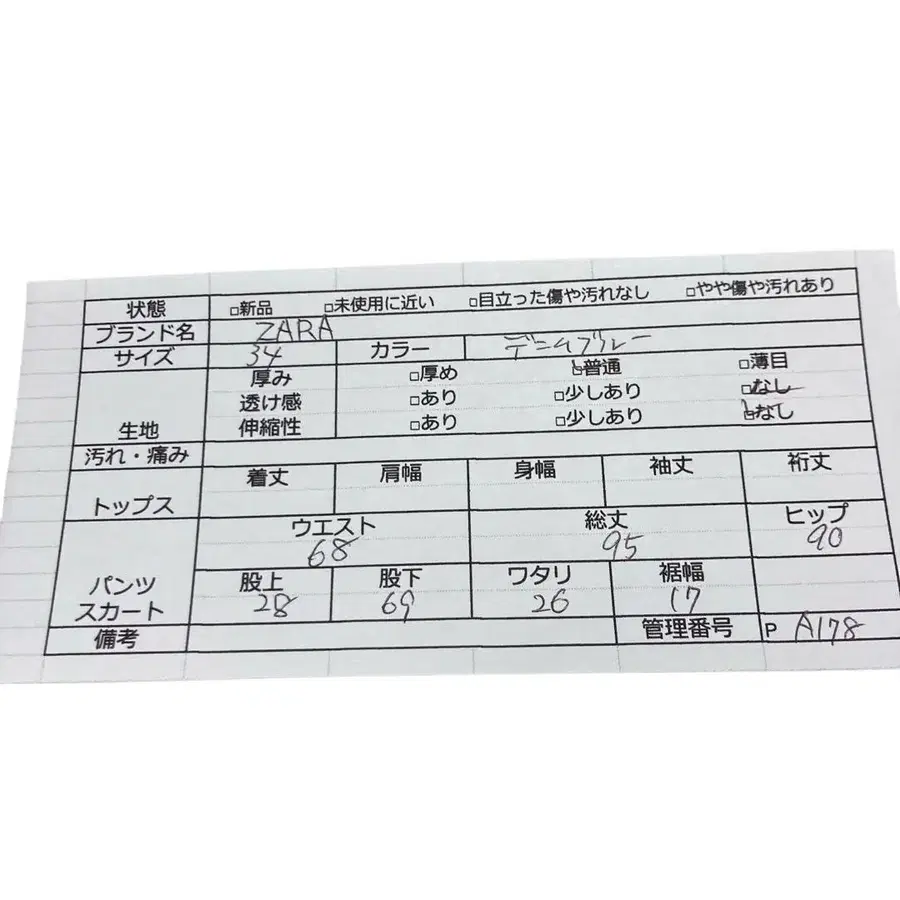 状態 □新品 □未使用に近い □目立った傷や汚れなし □やや傷や汚れあり
ブランド名 ZARA
サイズ 34 カラー デニムブルー
厚み □厚め □普通 □薄目
透け感 □あり □少しあり □なし
生地 伸縮性 □あり □少しあり □なし
汚れ・痛み
トップス 着丈 肩幅 身幅 袖丈 裄丈
ウエスト 総丈 ヒップ
68 95 90
パンツ 股上 股下 ワタリ 裾幅
スカート 28 69 26 17
備考 管理番号 P A178